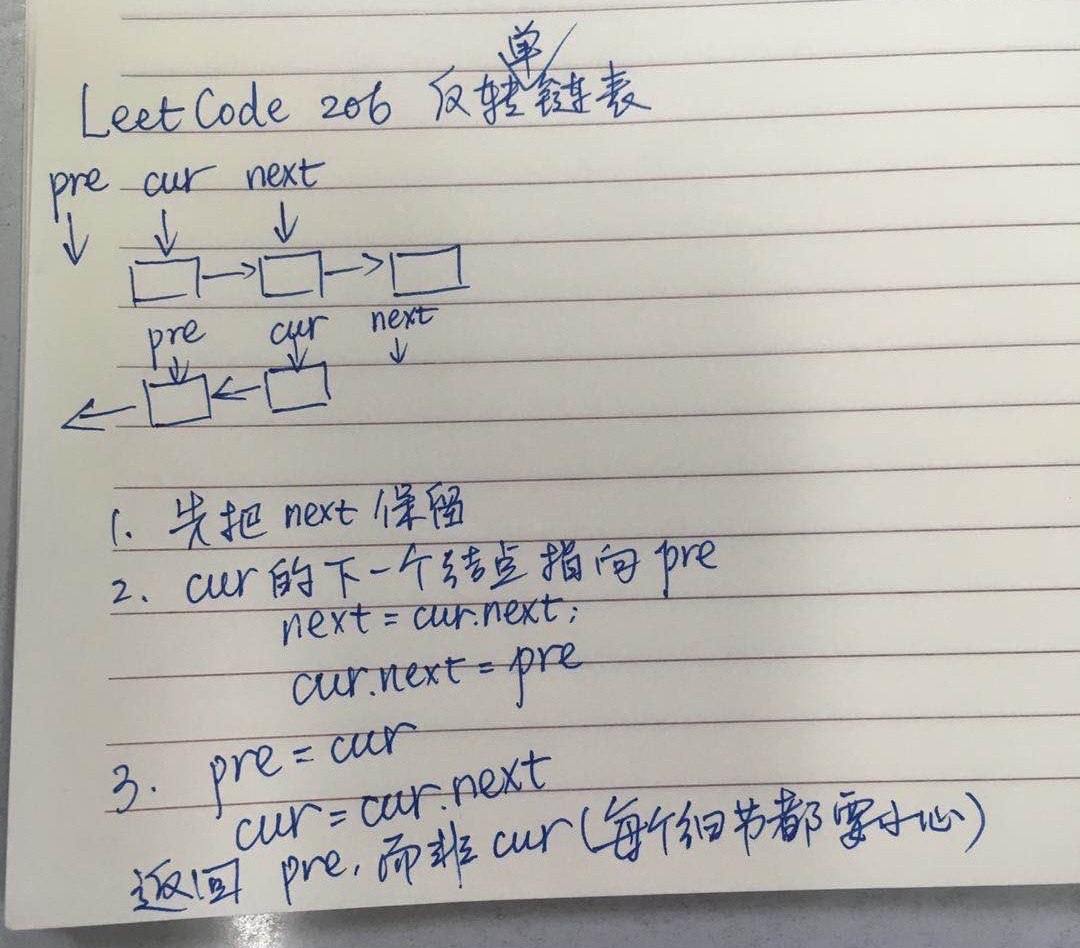 LeetCode 206 反转单链表
pre cur next
pre cur next
1. 先把 next 保留
2. cur 的下一个结点指向 pre
next = cur.next;
cur.next = pre
3. pre = cur
cur = cur.next
返回 pre, 而非 cur (每个细节都要小心)